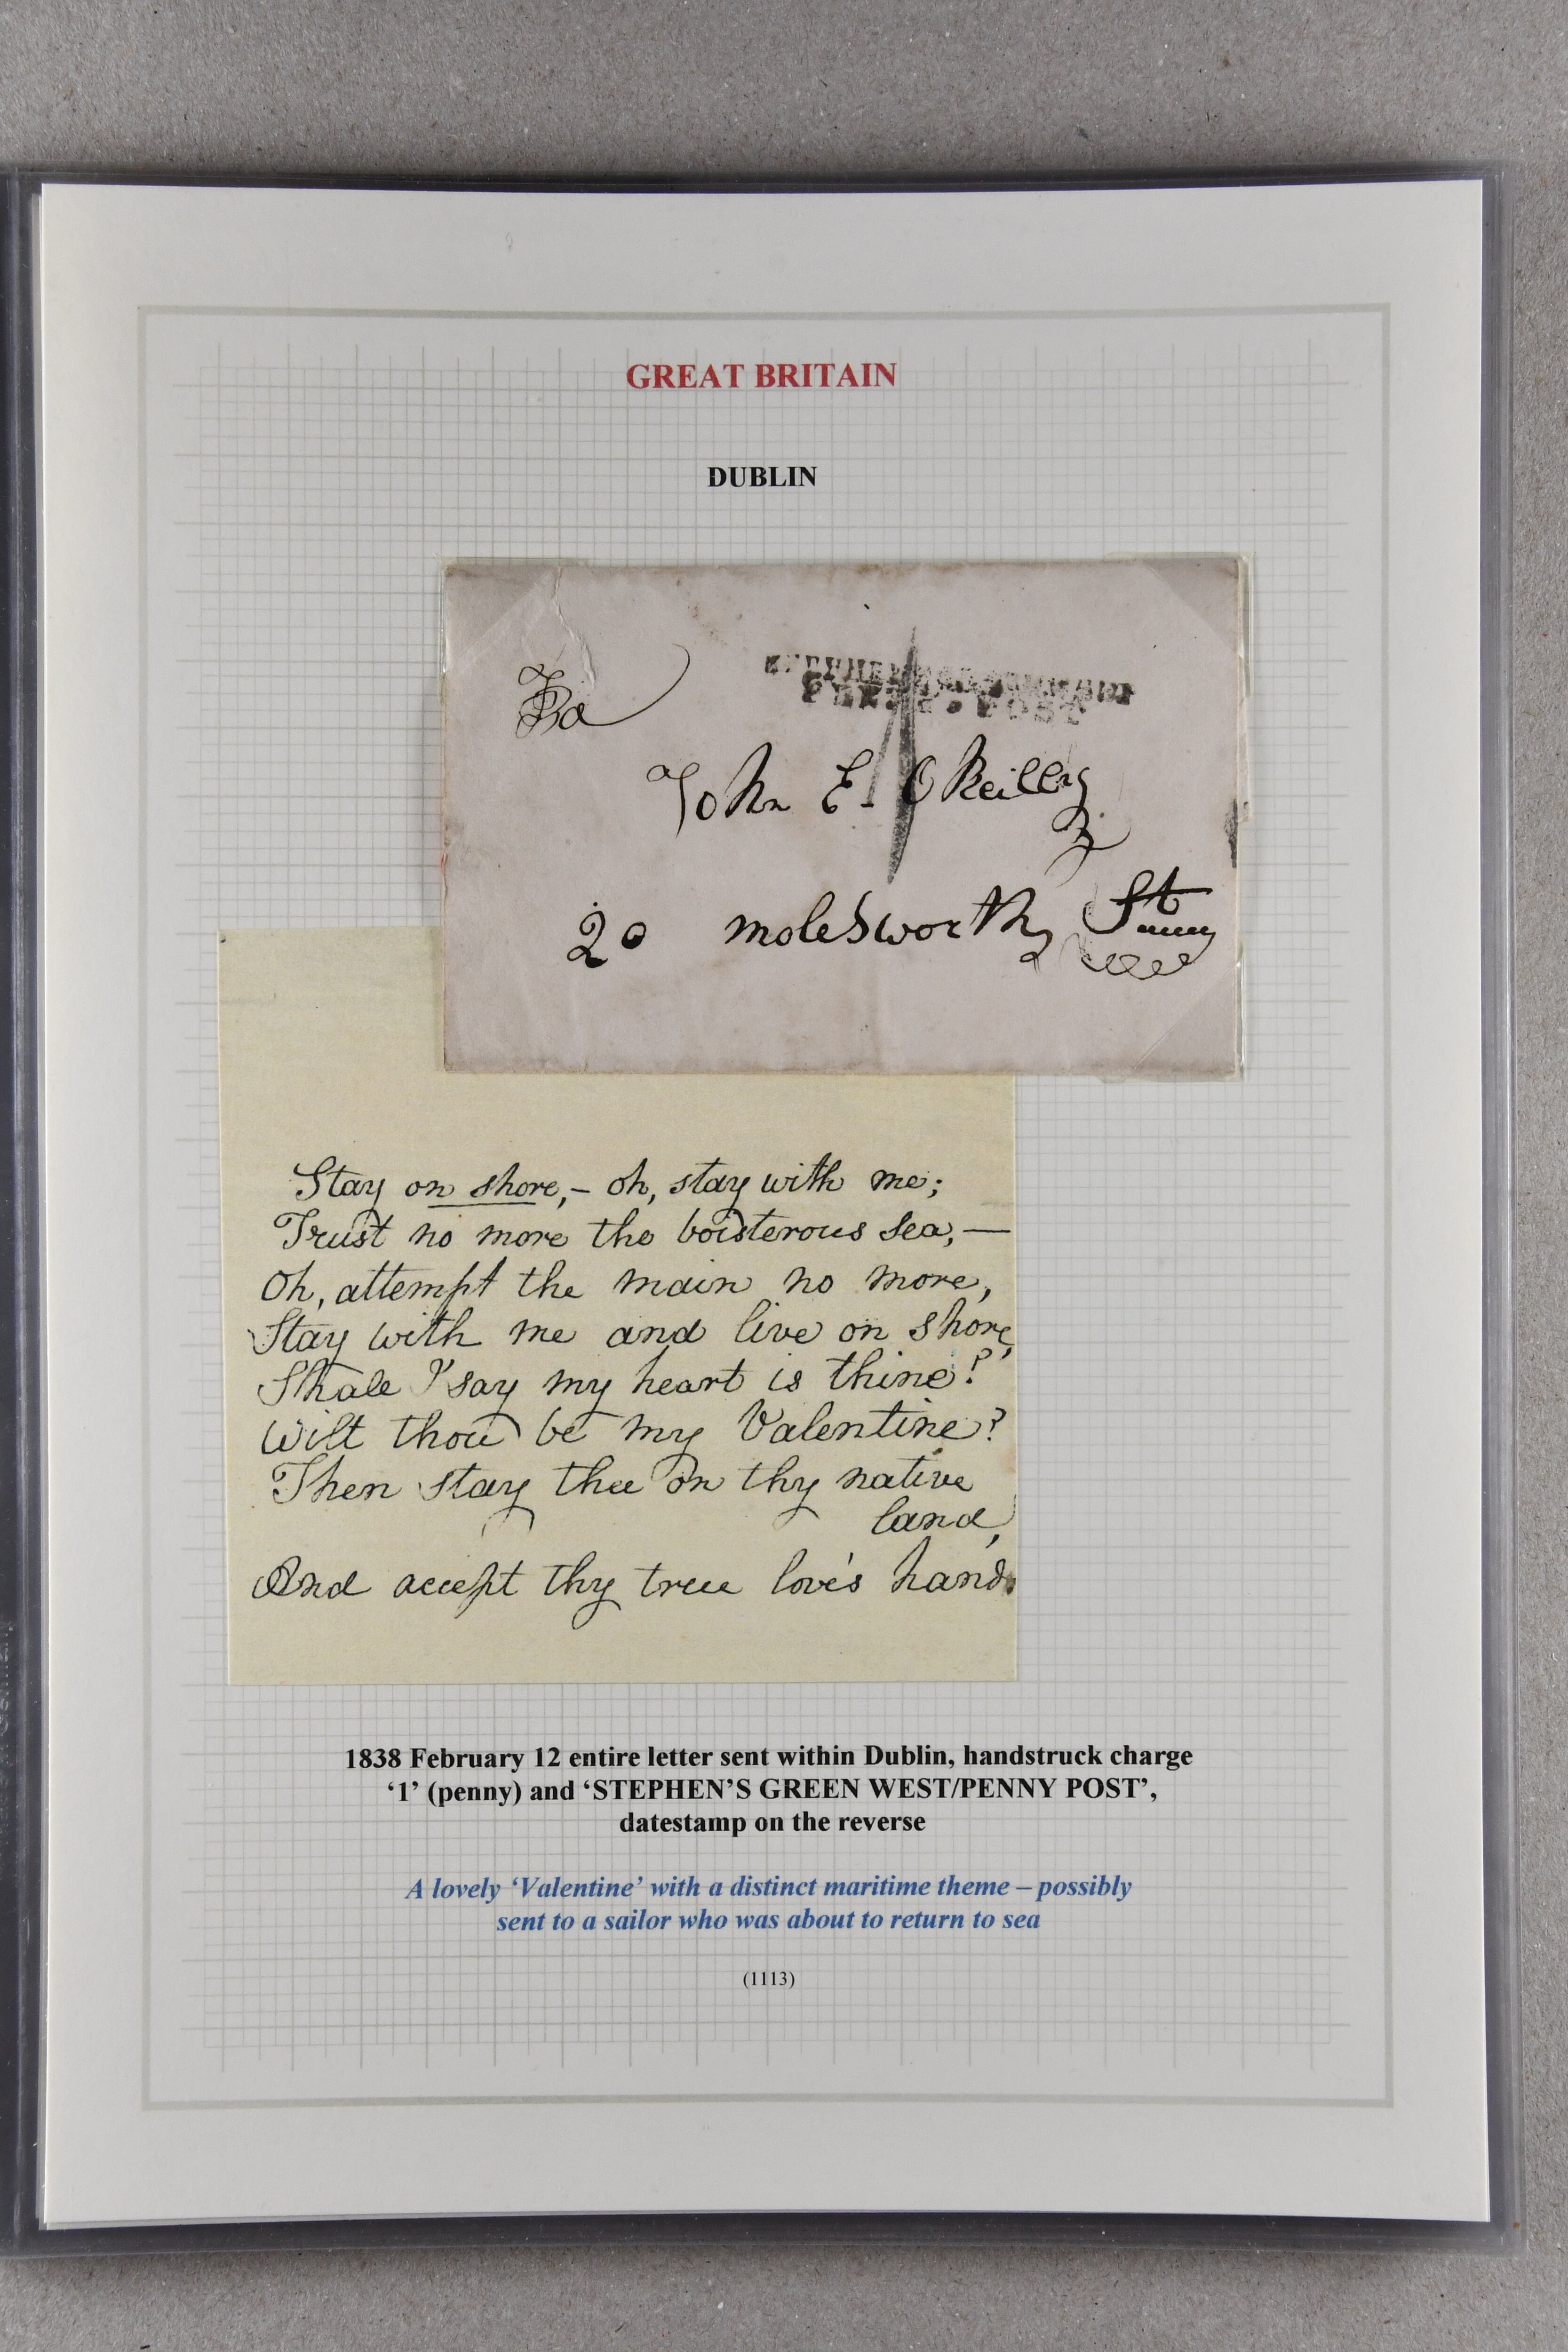 GREAT BRITAIN
DUBLIN
PENNY POST
1
John E. O Reilly
20 molesworth St
Stay on shore,- oh, stay with me;
Trust no more the boisterous sea,—
Oh, attempt the main no more,
Stay with me and live on shore,
Shall I say my heart is thine?
Wilt thou be my Valentine?
Then stay thee on thy native
land,
And accept thy true love's hand.
1838 February 12 entire letter sent within Dublin, handstruck charge
‘1’ (penny) and ‘STEPHEN’S GREEN WEST/PENNY POST’,
datestamp on the reverse
A lovely ‘Valentine’ with a distinct maritime theme – possibly
sent to a sailor who was about to return to sea
(1113)